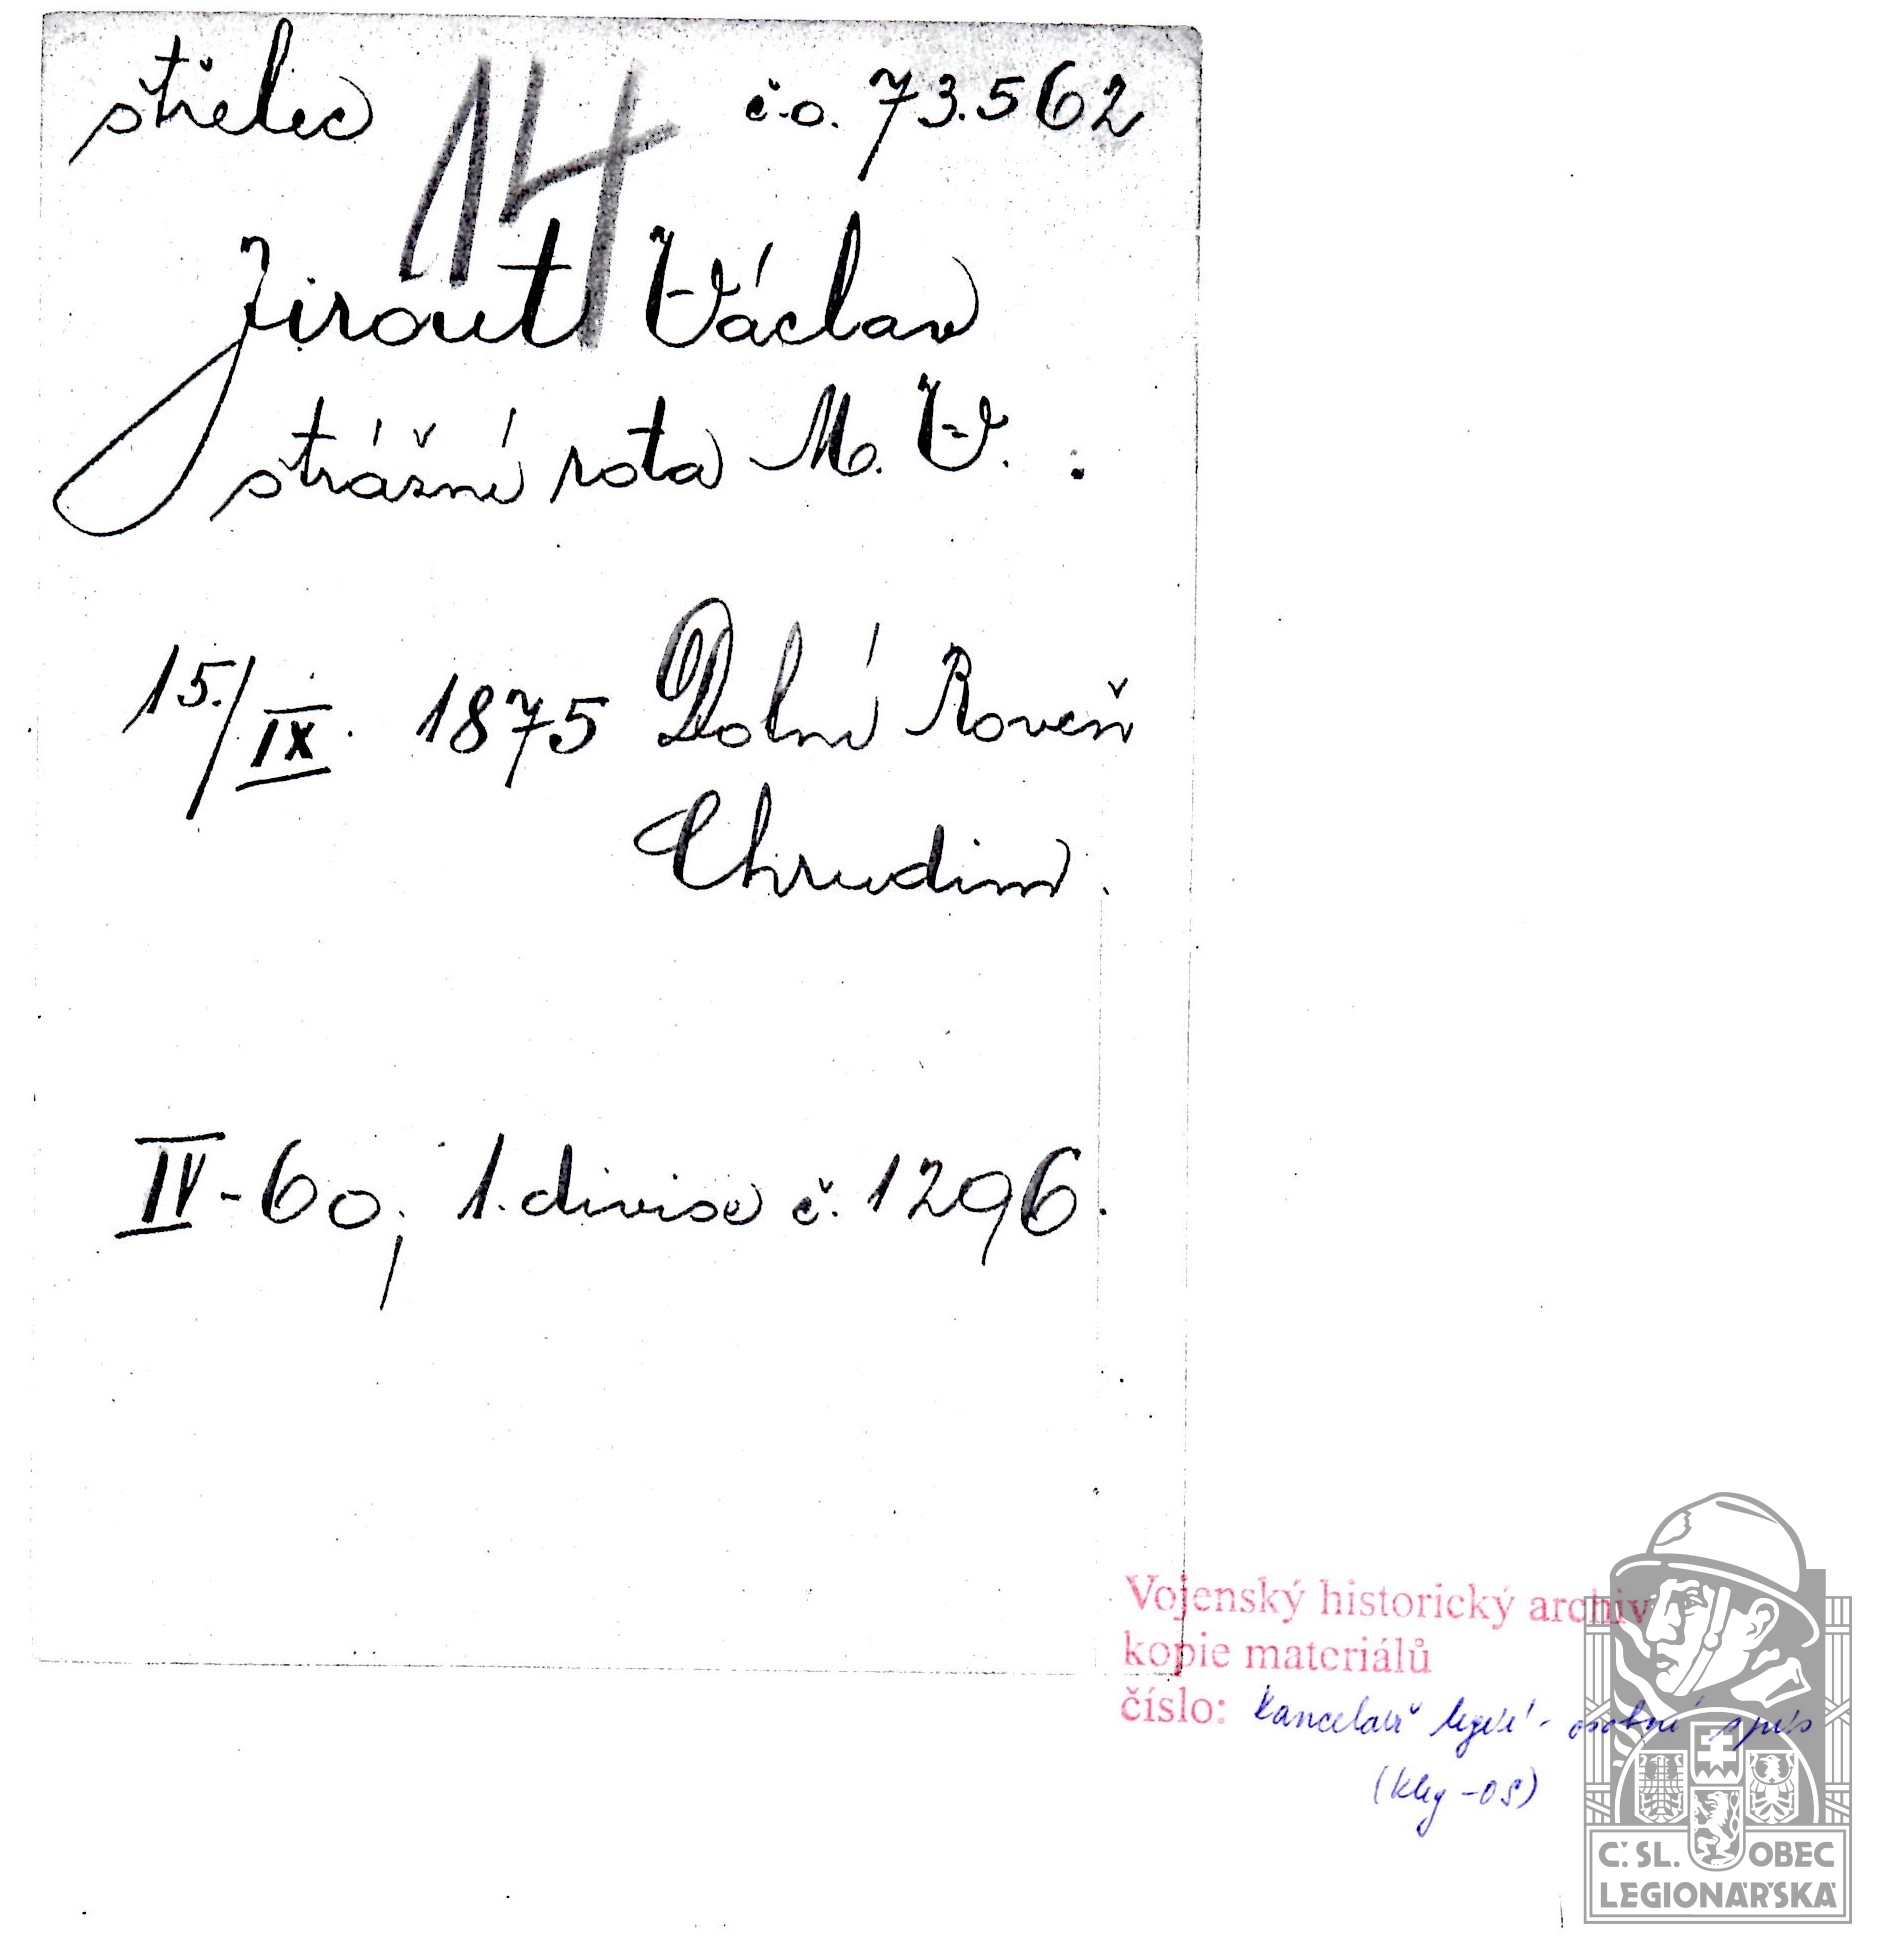 střelec 14 č.o. 73.562
Jirout Václav
strážní rota M. V.
15./IX. 1875 Dolní Roveň
Chrudim.
IV-60, 1. divise č. 1296.
Vojenský historický archiv
kopie materiálů
číslo: kancelář legií - osobní spis
(kleg - OS)
Č. SL. OBEC
LEGIONÁŘSKÁ